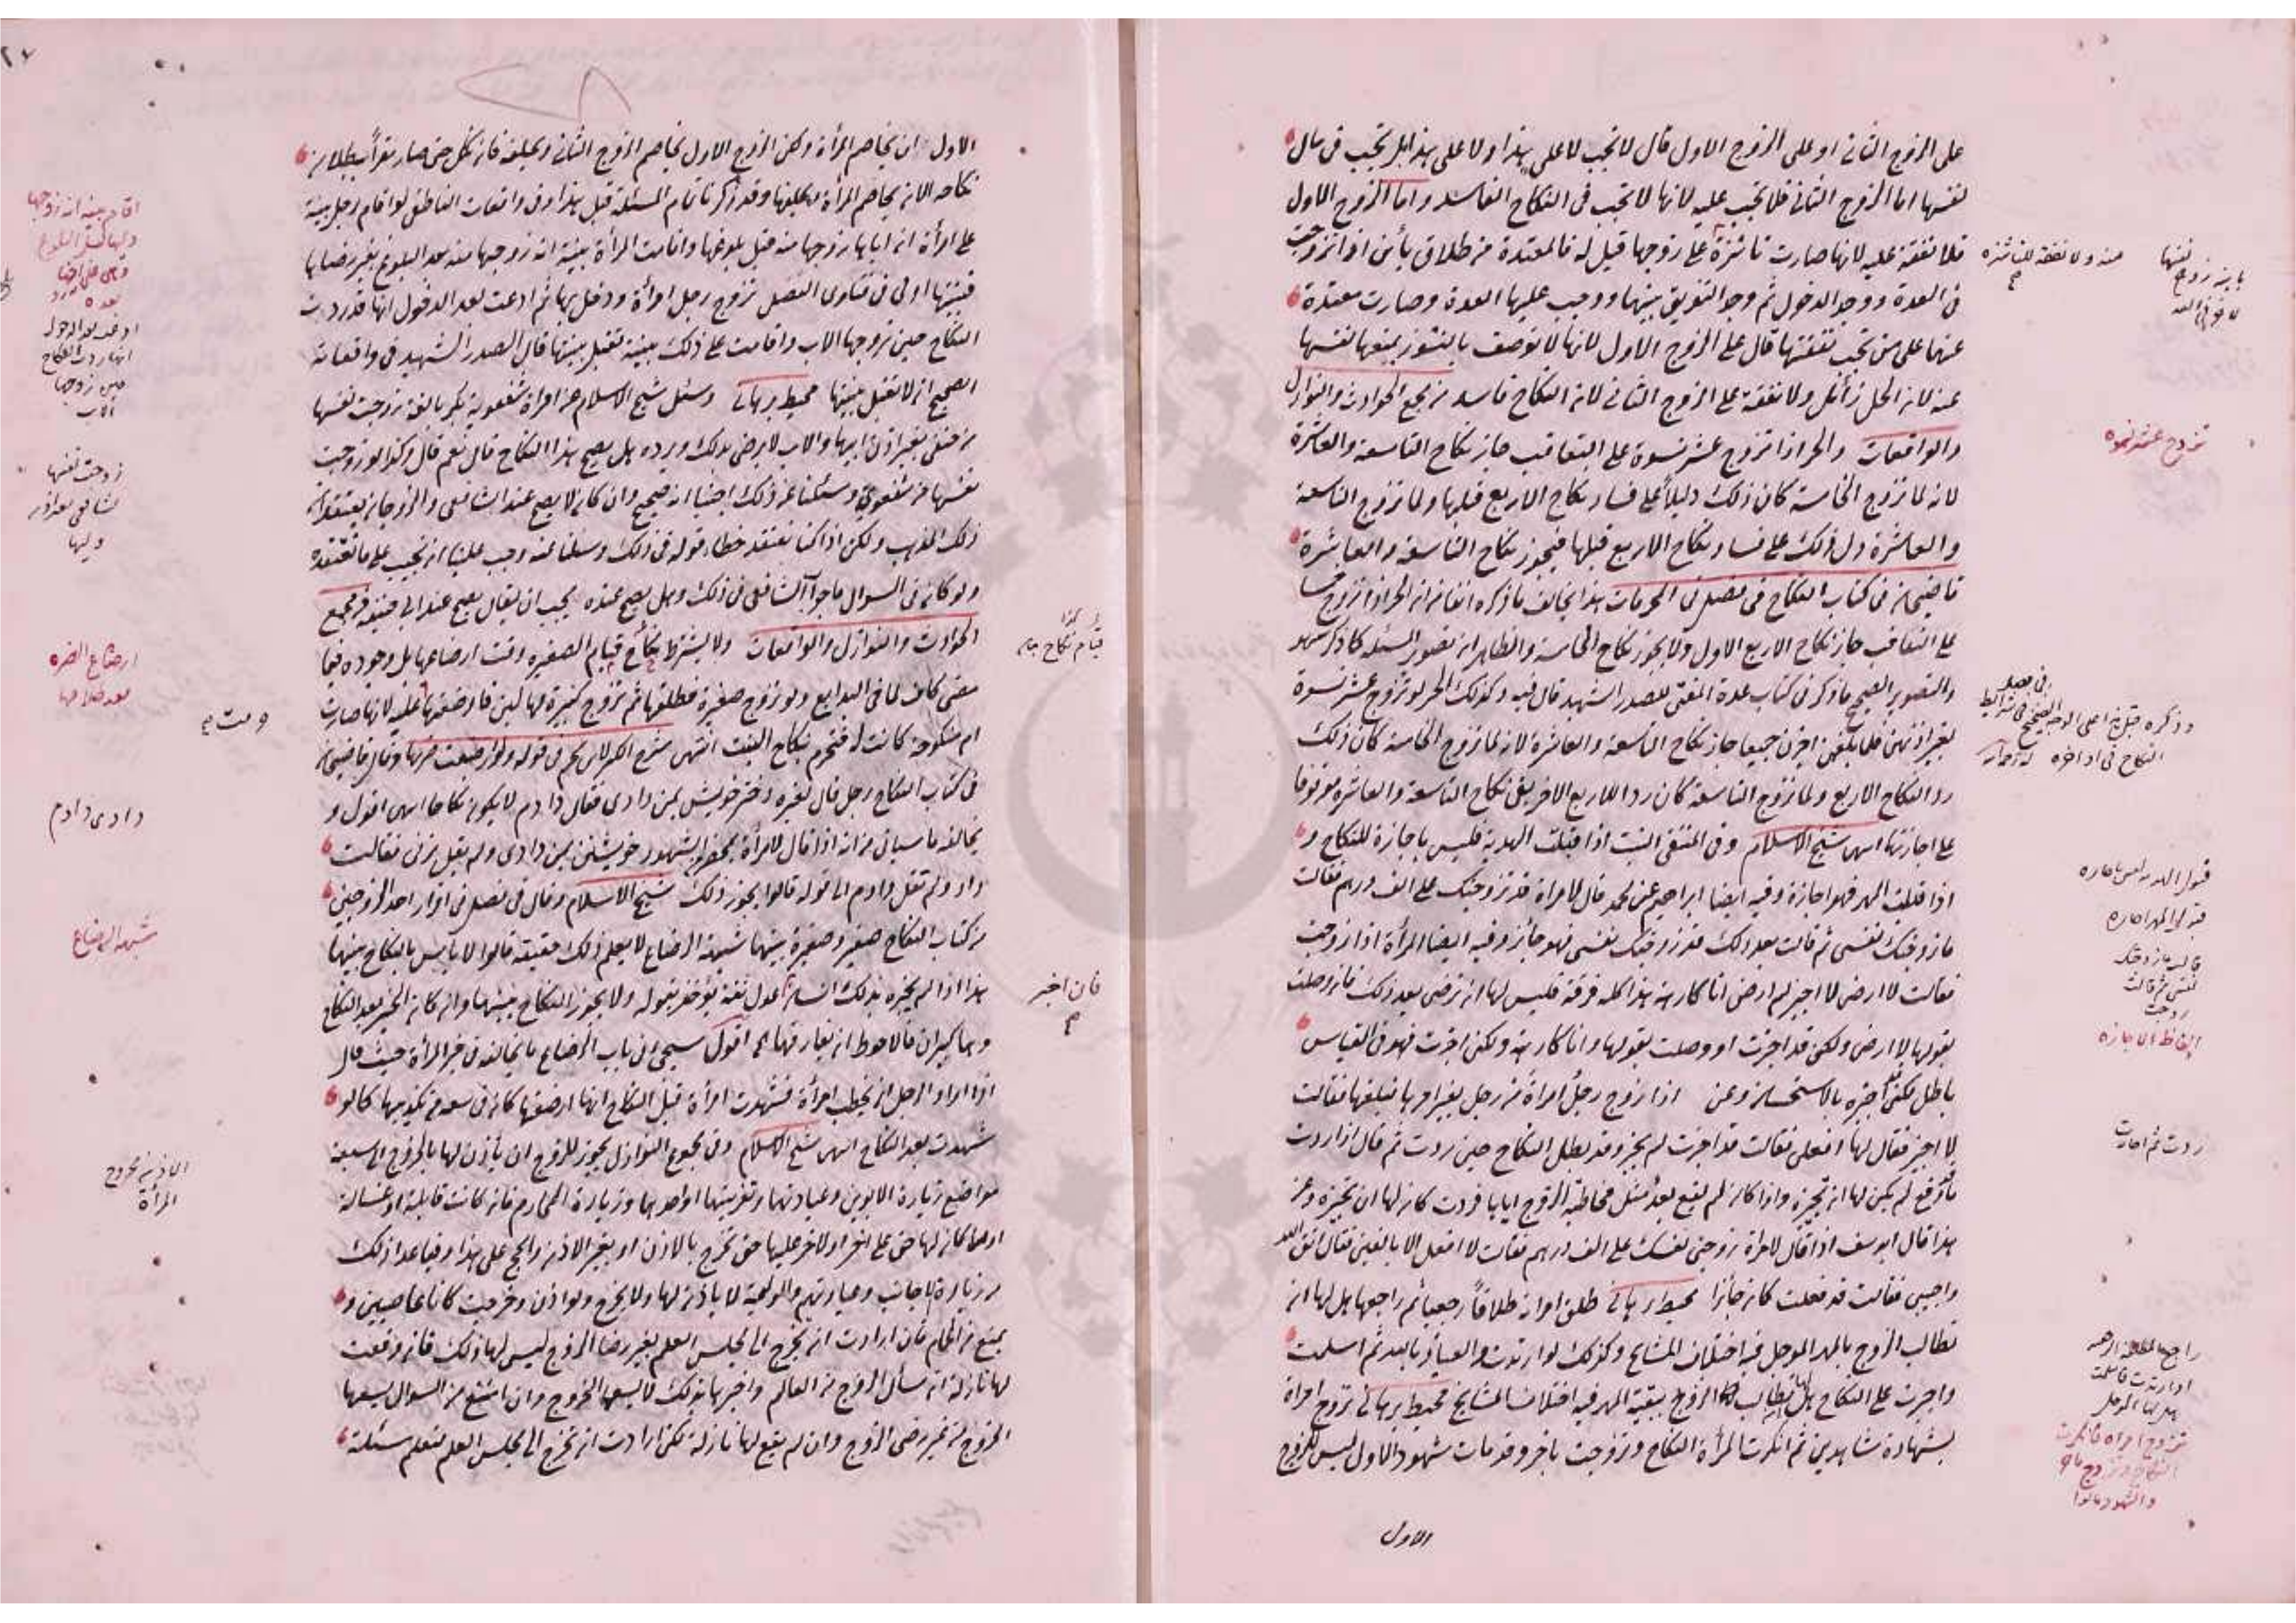 على الزوج الثاني او على الزوج الاول قال لا تجب لا على هذا ولا على هذا بل تجب في مال
نفسها اما الزوج الثاني فلا تجب عليه لانها لا تجب في النكاح الفاسد واما الزوج الاول
فلا نفقة عليه لانها صارت ناشزة على زوجها قيل له فالمعتدة من طلاق بائن اذا تزوجت
في العدة ووجد الدخول ثم وجد التفريق بينهما ووجب عليها العدة وصارت معتدة
عنهما على من تجب نفقتها قال على الزوج الاول لانها لا توصف بالنشوز بمنعها نفسها
عنه لان الحل زائل ولا نفقة على الزوج الثاني لان النكاح فاسد من مجمع الحوادث والنوازل
والواقعات والحر اذا تزوج عشر نسوة على التعاقب جاز نكاح التاسعة والعاشرة
لانه لما تزوج الخامسة كان ذلك دليلاً على فساد نكاح الاربع قبلها ولما تزوج التاسعة
والعاشرة دل ذلك على فساد نكاح الاربع قبلها فيجوز نكاح التاسعة والعاشرة
قاضيخان في كتاب النكاح في فصل في المحرمات هذا يخالف ما ذكره انفا من ان الحر اذا تزوج خمسا
على التعاقب جاز نكاح الاربع الاول ولا يجوز نكاح الخامسة والظاهر ان تصوير المسئلة كما ذكر سهو
والتصوير الصحيح ما ذكر في كتاب عمدة المفتي للصدر الشهيد قال فيه وكذلك الحر لو تزوج عشر نسوة
بغير اذنهن فلما بلغهن اجزن جميعا جاز نكاح التاسعة والعاشرة لانه لما تزوج الخامسة كان ذلك
رد النكاح الاربع ولما تزوج التاسعة كان ردا للاربع الاخر بقي نكاح التاسعة والعاشرة موقوفا
على اجازتها انتهى شيخ الاسلام وفي المنتقى البنت اذا قبلت الهدية فليس باجازة للنكاح و
اذا قبلت المهر فهو اجازة وفيه ايضا ابراهيم عن محمد قال لامراة قد تزوجتك على الف درهم فقالت
ما زوجتك نفسي ثم قالت بعد ذلك قد زوجتك نفسي فهو جائز وفيه ايضا المرأة اذا زوجت
فقالت لا ارضى لا اجيز لم ارض انا كارهة هذا كله فرقة فليس لها ان ترضى بعد ذلك فان وصلت
بقولها لا ارضى ولكني قد اجزت او وصلت بقولها وانا كارهة ولكني اجزت فهو في القياس
باطل لكني اجيزه بالاستحسان وعن اذا زوج رجل امراة من رجل بغير امرها فبلغها فقالت
لا اجيز فقال لها افعلي فقالت قد اجزت لم يجز وقد بطل النكاح حين ردت ثم قال اذا ردت
ما وقع لم يكن لها ان تجيزه واذا كان لم يقع بعد مثل مخاطبة الزوج اياها فردت كان لها ان تجيزه وعن
هذا قال ابو يوسف اذا قال لامرأة زوجيني نفسك على الف درهم فقالت لا افعل الا بالفين فقال اتق الله
واجيبي فقالت قد فعلت كان جائزا محيط برهاني طلق امرأته طلاقاً رجعيا ثم راجعها هل لها ان
تطالب الزوج بالمهر المؤجل فيه اختلاف المشايخ وكذلك لو ارتدت والعياذ بالله ثم اسلمت
واجبرت على النكاح هل تطالب الزوج ببقية المهر فيه اختلاف المشايخ محيط برهاني تزوج امرأة
بشهادة شاهدين ثم انكرت المرأة النكاح وتزوجت باخر وقد مات شهود الاول ليس للزوج
الاول
منه ولا نفقة للناشزة
تزوج عشر نسوة
قبول الهدية ليس باجازة
قبول المهر اجازة
الفاظ الاجازة
ردت ثم اجازت
الاول ان يخاصم المرأة ولكن الزوج الاول يخاصم الزوج الثاني ويحلفه فان نكل حتى صار مقراً ببطلان
نكاحه الان يخاصم المرأة ويحلفها وقد ذكرنا تمام المسئلة قبل هذا وفي واقعات الناطفي لو اقام رجل بينة
على امرأة ان اباها زوجها منه قبل بلوغها واقامت المرأة بينة انه زوجها منه بعد البلوغ بغير رضاها
فبينتها اولى في فتاوى الفضل تزوج رجل امرأة ودخل بها ثم ادعت بعد الدخول انها قد ردت
النكاح حين زوجها الاب واقامت على ذلك بينة تقبل بينتها قال الصدر الشهيد في واقعاته
الصحيح انه لا تقبل بينتها محيط برهاني وسئل شيخ الاسلام عن امرأة شفعوية بكر بالغة زوجت نفسها
من حنفي بغير اذن ابيها والاب لا يرضى بذلك ويرده هل يصح هذا النكاح قال نعم قال وكذا لو زوجت
نفسها من شفعوي وسئلنا عن ذلك اجبنا انه صحيح وان كان لا يصح عند الشافعي والزوجان يعتقدان
ذلك المذهب ولكن اذا كنا نعتقد خطاء قوله في ذلك وسئلنا عنه وجب علينا ان نجيب على ما نعتقده
ولو كان في السؤال ما جواب الشافعي في ذلك وهل يصح عنده يجب ان يقال يصح عند ابي حنيفة من مجمع
الحوادث والنوازل والواقعات ولا يشترط قيام الصغيره وقت ارضاعها بل وجوده فيما
مضى كاف لما في البدايع ولو تزوج صغيرة فطلقها ثم تزوج كبيرة لها لبن فارضعتها عليه لانها صارت
ام منكوحة كانت له فتحرم بنكاح البنت انتهى شرح الكنز لابن نجيم في قوله ولو ارضعت ضرتها وقال قاضيخان
في كتاب النكاح رجل قال لغيره دختر خويش بمن دادى فقال دادم لا يكون نكاحا انتهى اقول و
يخالفه ما سياتي من انه اذا قال لامرأة بمحضر الشهود خويشتن بمن دادى ولم يقل بزني فقالت
داد ولم تقل دادم الى قوله قالوا يجوز ذلك شيخ الاسلام وقال في فصل في اقرار احد الزوجين
من كتاب النكاح صغير وصغيرة بينهما شبهة الرضاع لا يعلم ذلك حقيقة قالوا لا باس بالنكاح بينهما
هذا اذا لم يخبره بذلك انسان عدل ثقة يؤخذ بقوله ولا يجوز النكاح بينهما وان كان الخبر بعد النكاح
وهما كبيران فالاحوط ان يفارقها اقول سيجئ في باب الرضاع ما يخالفه في خبر المرأة حيث قال
اذا اراد الرجل ان يخطب امرأة فشهدت امرأة قبل النكاح انها ارضعتها كان في سعة من تكذيبها كما لو
شهدت بعد النكاح انتهى شيخ الاسلام وفي مجموع النوازل يجوز للزوج ان يأذن لها بالخروج الى سبعة
مواضع زيارة الابوين وعيادتهما وتعزيتهما او احدهما وزيارة المحارم فان كانت قابلة او غسالة
او كان لها حق على اخر او لاخر عليها حق تخرج بالاذن او بغير الاذن والحج على هذا وفيما عدا ذلك
من زيارة الاجانب وعيادتهم والوليمة لا ياذن لها ولا تخرج ولو اذن وخرجت كانا عاصيين و
يمنع من الحمام فان ارادت ان تخرج الى مجلس العلم بغير رضا الزوج ليس لها ذلك فان وقعت
لها نازلة ان سأل الزوج من العالم واخبرها بذلك لا يسعها الخروج وان امتنع من السؤال يسعها
الخروج من غير رضى الزوج وان لم يقع لها نازلة لكن ارادت ان تخرج الى مجلس العلم لتعلم مسئلة
زوجت نفسها
ارضاع الضره
دادى دادم
شبهة الرضاع
فان اخبر
المرأة